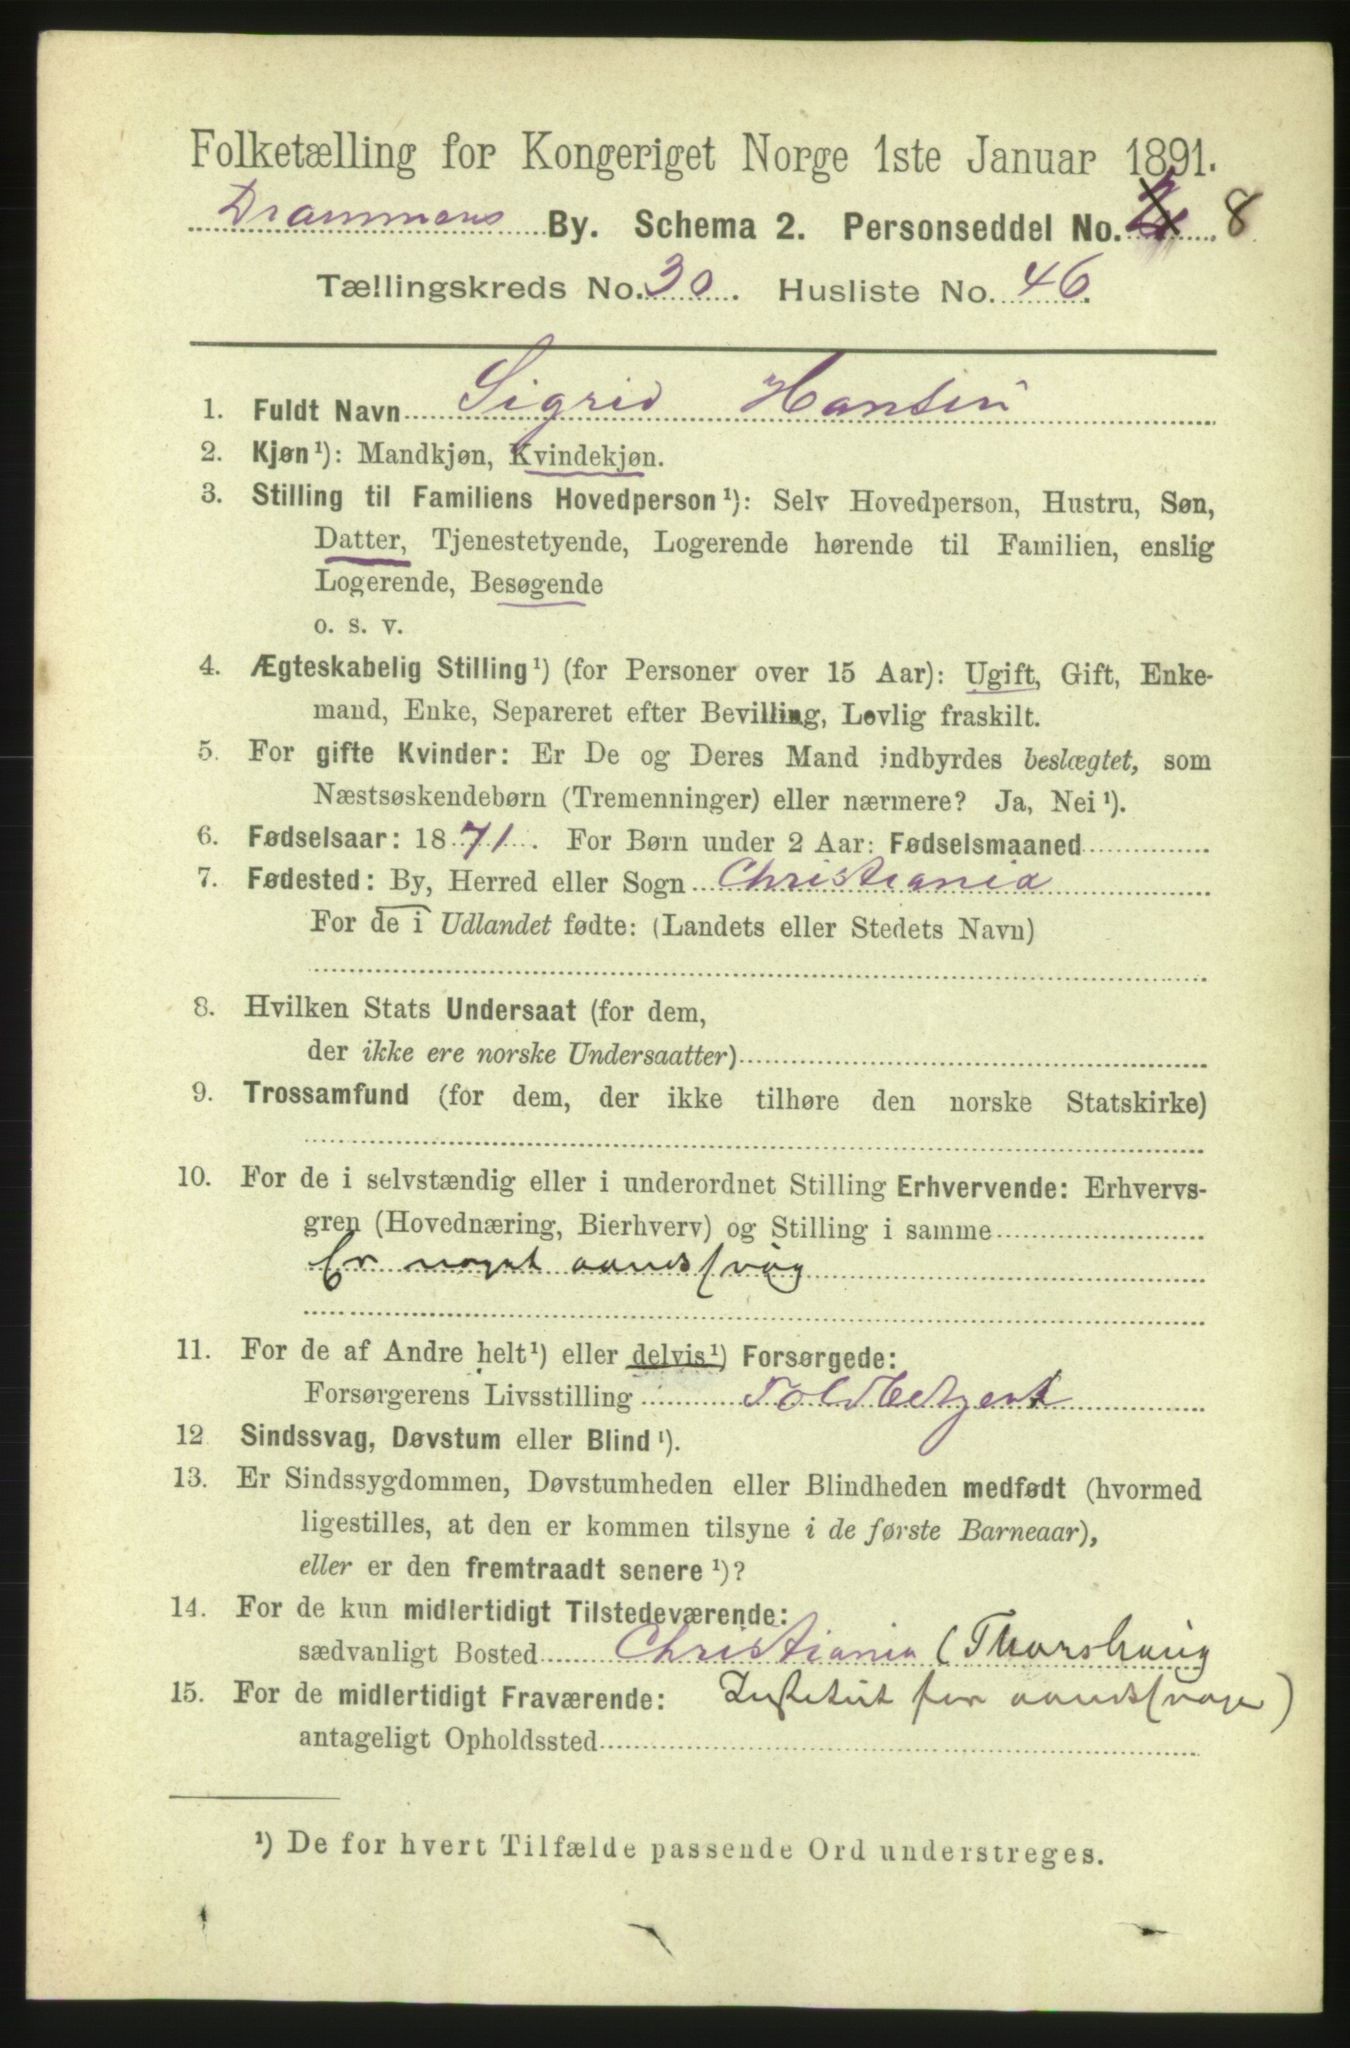 Folketælling for Kongeriget Norge 1ste Januar 1891.
Drammens By. Schema 2. Personseddel No. 8
Tællingskreds No. 30. Husliste No. 46.
1. Fuldt Navn Sigrid Hansen
2. Kjøn¹): Mandkjøn, Kvindekjøn.
3. Stilling til Familiens Hovedperson¹): Selv Hovedperson, Hustru, Søn,
Datter, Tjenestetyende, Logerende hørende til Familien, enslig
Logerende, Besøgende
o. s. v.
4. Ægteskabelig Stilling¹) (for Personer over 15 Aar): Ugift, Gift, Enke-
mand, Enke, Separeret efter Bevilling, Lovlig fraskilt.
5. For gifte Kvinder: Er De og Deres Mand indbyrdes beslægtet, som
Næstsøskendebørn (Tremenninger) eller nærmere? Ja, Nei¹).
6. Fødselsaar: 1871. For Børn under 2 Aar: Fødselsmaaned
7. Fødested: By, Herred eller Sogn Christiania
For de i Udlandet fødte: (Landets eller Stedets Navn)
8. Hvilken Stats Undersaat (for dem,
der ikke ere norske Undersaatter)
9. Trossamfund (for dem, der ikke tilhøre den norske Statskirke)
10. For de i selvstændig eller i underordnet Stilling Erhvervende: Erhvervs-
gren (Hovednæring, Bierhverv) og Stilling i samme
Er noget aandssvag
11. For de af Andre helt¹) eller delvis¹) Forsørgede:
Forsørgerens Livsstilling Toldbetjent
12 Sindssvag, Døvstum eller Blind¹).
13. Er Sindssygdommen, Døvstumheden eller Blindheden medfødt (hvormed
ligestilles, at den er kommen tilsyne i de første Barneaar),
eller er den fremtraadt senere¹)?
14. For de kun midlertidigt Tilstedeværende:
sædvanligt Bosted Christiania (Thorshaug
15. For de midlertidigt Fraværende: Institut for aandssvage)
antageligt Opholdssted
¹) De for hvert Tilfælde passende Ord understreges.